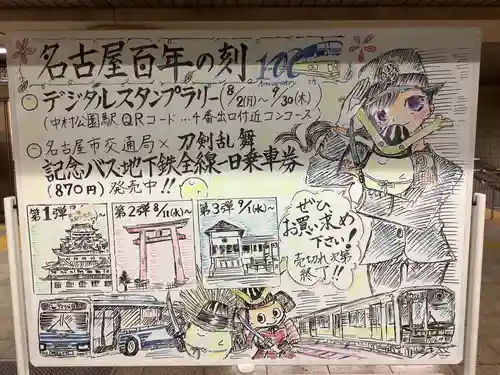 名古屋百年の刻 100th Anniversary
デジタルスタンプラリー(8/2(月)～9/30(木))
(中村公園駅 QRコード…4番出口付近コンコース)
名古屋市交通局×刀剣乱舞
記念バス地下鉄全線一日乗車券
(870円)発売中!!
第1弾
第2弾 8/11(水)～
第3弾 9/1(水)～
ぜひ
お買い求め
下さい!
売切れ次第
終了!!